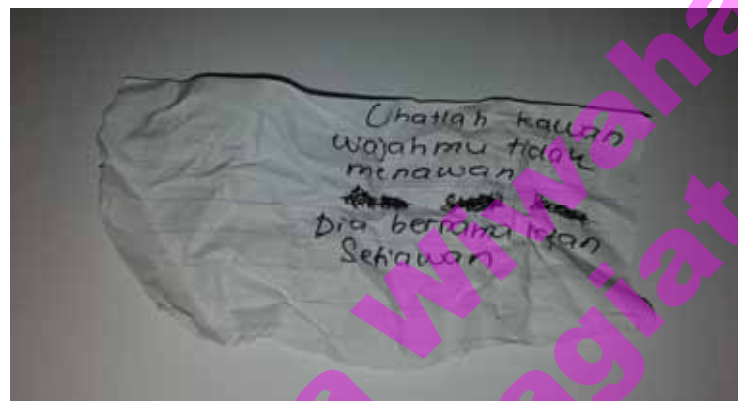 Lihatlah kawan
wajahmu tidak
menawan
Dia bernama Irfan
Setiawan
wiwaha
plagiat